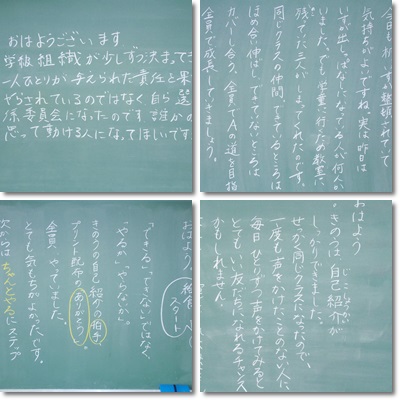 おはようございます
学級組織が少しずつ決まってき
一人ひとりが与えられた責任と果
やらされているのではなく自ら選
係、委員会になったのです。誰かの
思って動ける人になってほしいです
今日も机、すが整頓されていて
気持ちがよいですね。実は昨日
いすが出しっぱなしになってる人が何人か
いました。でも学童へ行くため教室に
残っていた三人がしまってくれたのです。
同じクラスの仲間。できていないところは
カバーし合う、全員でAの道を目指
ほめ合い伸ばし、できていないところは
全員で成長していきましょう。
おはよう
スタート
「できる」「できない」ではなく、
「やるか」「やらないか」。
きのうの自己紹介の拍手、
プリント配布の「ありがとう」。
全員やっていました。
とても気もちがよかったです。
次からは ちゃんとやるにステップ
おはよう
。きのうは自己紹介が
じこしょうかい
しっかりできました。
せっかく同じクラスになったので、
一度も声をかけたことのない人に、
毎日ひとりずつ声をかけてみると
とてもいい友だちになれるチャンス
かもしれません。